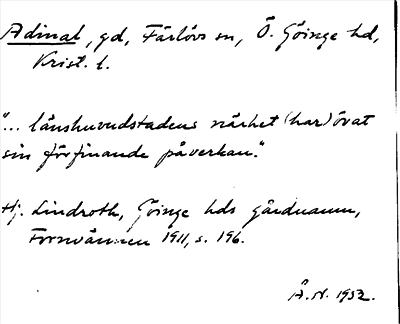 Adinal, gd, Färlövs sn, Ö. Göinge hd,
Krist. l.
"... länshuvudstadens närhet (har) övat
sin förfinande påverkan."
Hj. Lindroth, Göinge hds gårdnamn,
Fornvännen 1911, s. 196.
Å.N. 1932.